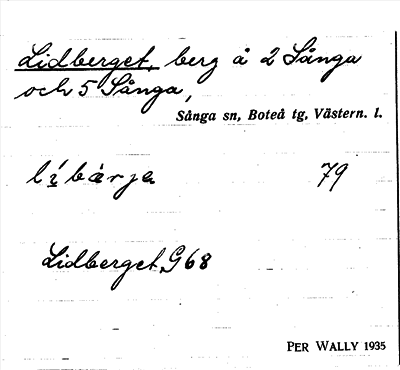 Lidberget, berg å 2 Sånga
och 5 Sånga,
Sånga sn, Boteå tg, Västern. l.
lí̱bàrja 79
Lidberget G68
PER WALLY 1935